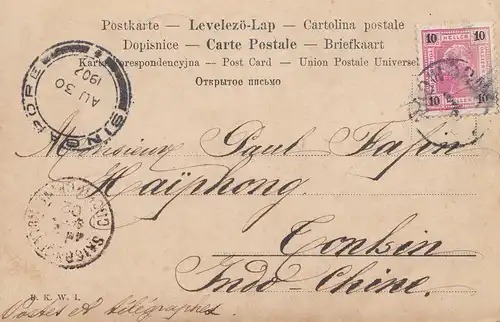 Postkarte — Levelező-Lap — Cartolina postale
Dopisnice — Carte Postale — Briefkaart
Karta korespondencyjna — Post Card — Union Postale Universelle
Открытое письмо
10 HELLER 10
10 10
SINGAPORE
AU 30
1907
Monsieur Paul Fajon
Haïphong.
Tonkin
Indo-Chine.
SAIGON
B. K. W. I.
Postes et télégraphes.